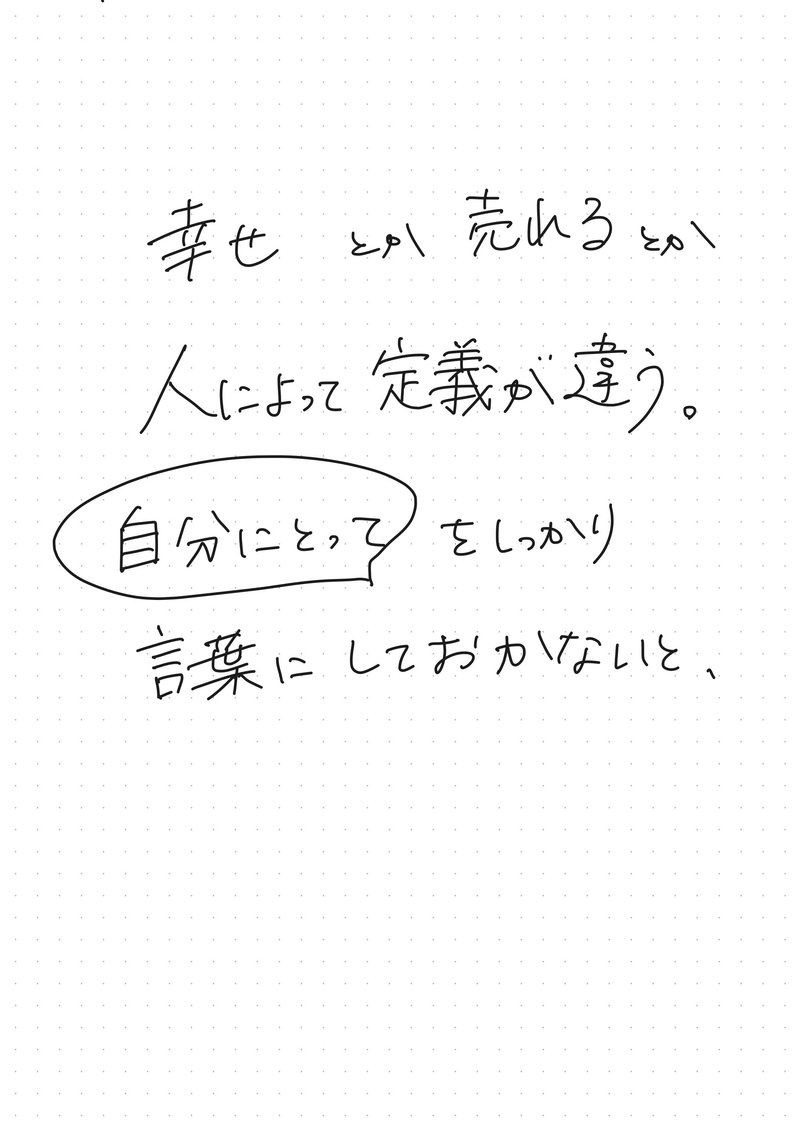 幸せ とか 売れる とか
人によって 定義が違う。
自分にとって をしっかり
言葉に しておかないと、